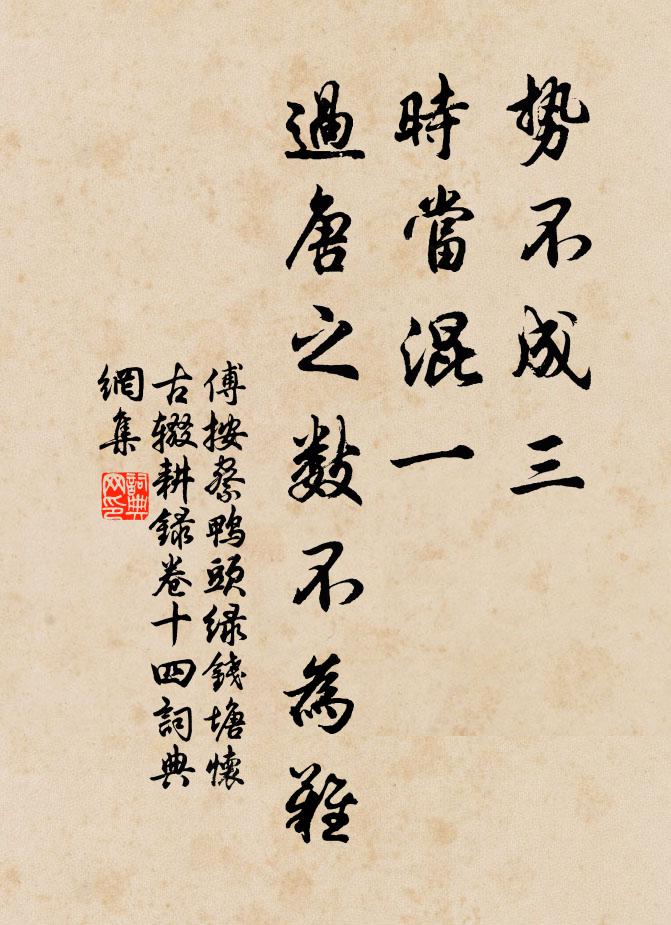 勢不成三
時當混一
過唐之数不為難
傅按察鴨頭緑錢塘懷
古辍耕録卷十四詞典
網集
詞典網印